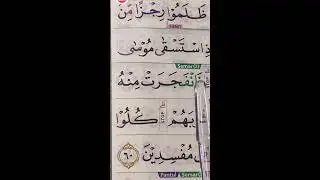 ظَلَمُوا رِجْزًا مِّنَ
ذِ اسْتَسْقَىٰ مُوسَىٰ
فَانْفَجَرَتْ مِنْهُ
بَهُمْ كُلُوا
مُفْسِدِينَ ٦٠